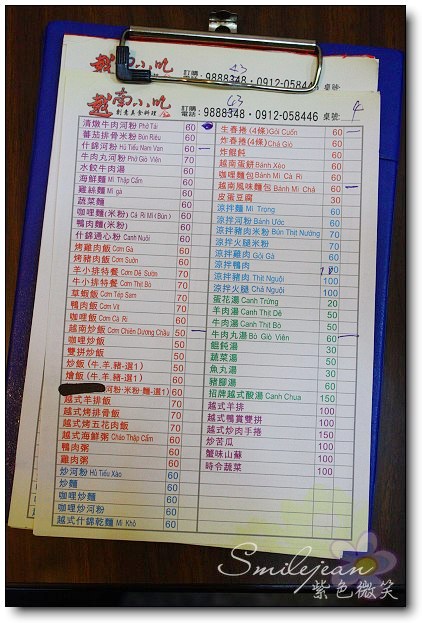 越南小吃
訂購
9888348·0912-058446 桌號
43
越南小吃
創意美食料理
訂購
電話：9888348·0912-058446 桌號：4
43
清燉牛肉河粉 Phở Tái 60
蕃茄排骨米粉 Bún Riêu 60
什錦河粉 Hủ Tiếu Nam Van 60
牛肉丸河粉 Phở Giò Viên 70
水餃牛肉湯 60
海鮮麵 Mì Thập Cẩm 60
雞絲麵 Mì gà 60
蔬菜麵 60
咖哩麵(米粉) Cà Ri Mì (Bún) 60
鴨肉麵(米粉) 60
什錦通心粉 Canh Nuôi 60
烤雞肉飯 Cơm Gà 60
烤豬肉飯 Cơm Sườn 60
羊小排特餐 Cơm Dê Sườn 70
牛小排特餐 Cơm Thịt Bò 70
草蝦飯 Cơm Tép Sam 70
鴨肉飯 Cơm Vịt 70
咖哩飯 Cơm Cà Ri 60
越南炒飯 Cơm Chiên Dương Châu 50
咖哩炒飯 50
雙拼炒飯 50
炒飯(牛.羊.豬-選1) 50
燴飯(牛.羊.豬-選1) 60
河粉-米粉-麵-選1) 60
越式羊排飯 70
越式烤排骨飯 70
越式烤五花肉飯 70
越式海鮮粥 Cháo Thập Cẩm 60
鴨肉粥 60
雞肉粥 60
炒河粉 Hủ Tiếu Xào 60
炒麵 60
咖哩炒麵 60
咖哩炒河粉 60
越式什錦乾麵 Mì Khô 60
生春捲(4條) Gỏi Cuốn 60
炸春捲(4條) Chả Giò 60
炸餛飩 60
越南蛋餅 Bánh Xèo 60
咖哩麵包 Bánh Mì Cà Ri 60
越南風味麵包 Bánh Mì Chả 60
皮蛋豆腐 30
涼拌麵 Mì Trọng 60
涼拌河粉 Bánh Ướt 60
涼拌豬肉米粉 Bún Thịt Nướng 70
涼拌火腿米粉 70
涼拌雞肉 Gỏi Gà 60
涼拌鴨肉
涼拌豬肉 Thịt Nguội 100
涼拌火腿 Chả Nguội 100
蛋花湯 Canh Trứng 20
羊肉湯 Canh Thịt Dê 50
牛肉湯 Canh Thịt Bò 50
牛肉丸湯 Bò Giò Viên 60
餛飩湯 50
蔬菜湯 50
魚丸湯 30
豬腳湯 60
招牌越式酸湯 Canh Chua 150
越式羊排 100
越式鴨賞雙拼 100
越式炒肉手捲 150
炒苦瓜 100
蟹味山蘇 100
時令蔬菜 100
Smilejean
紫色微笑